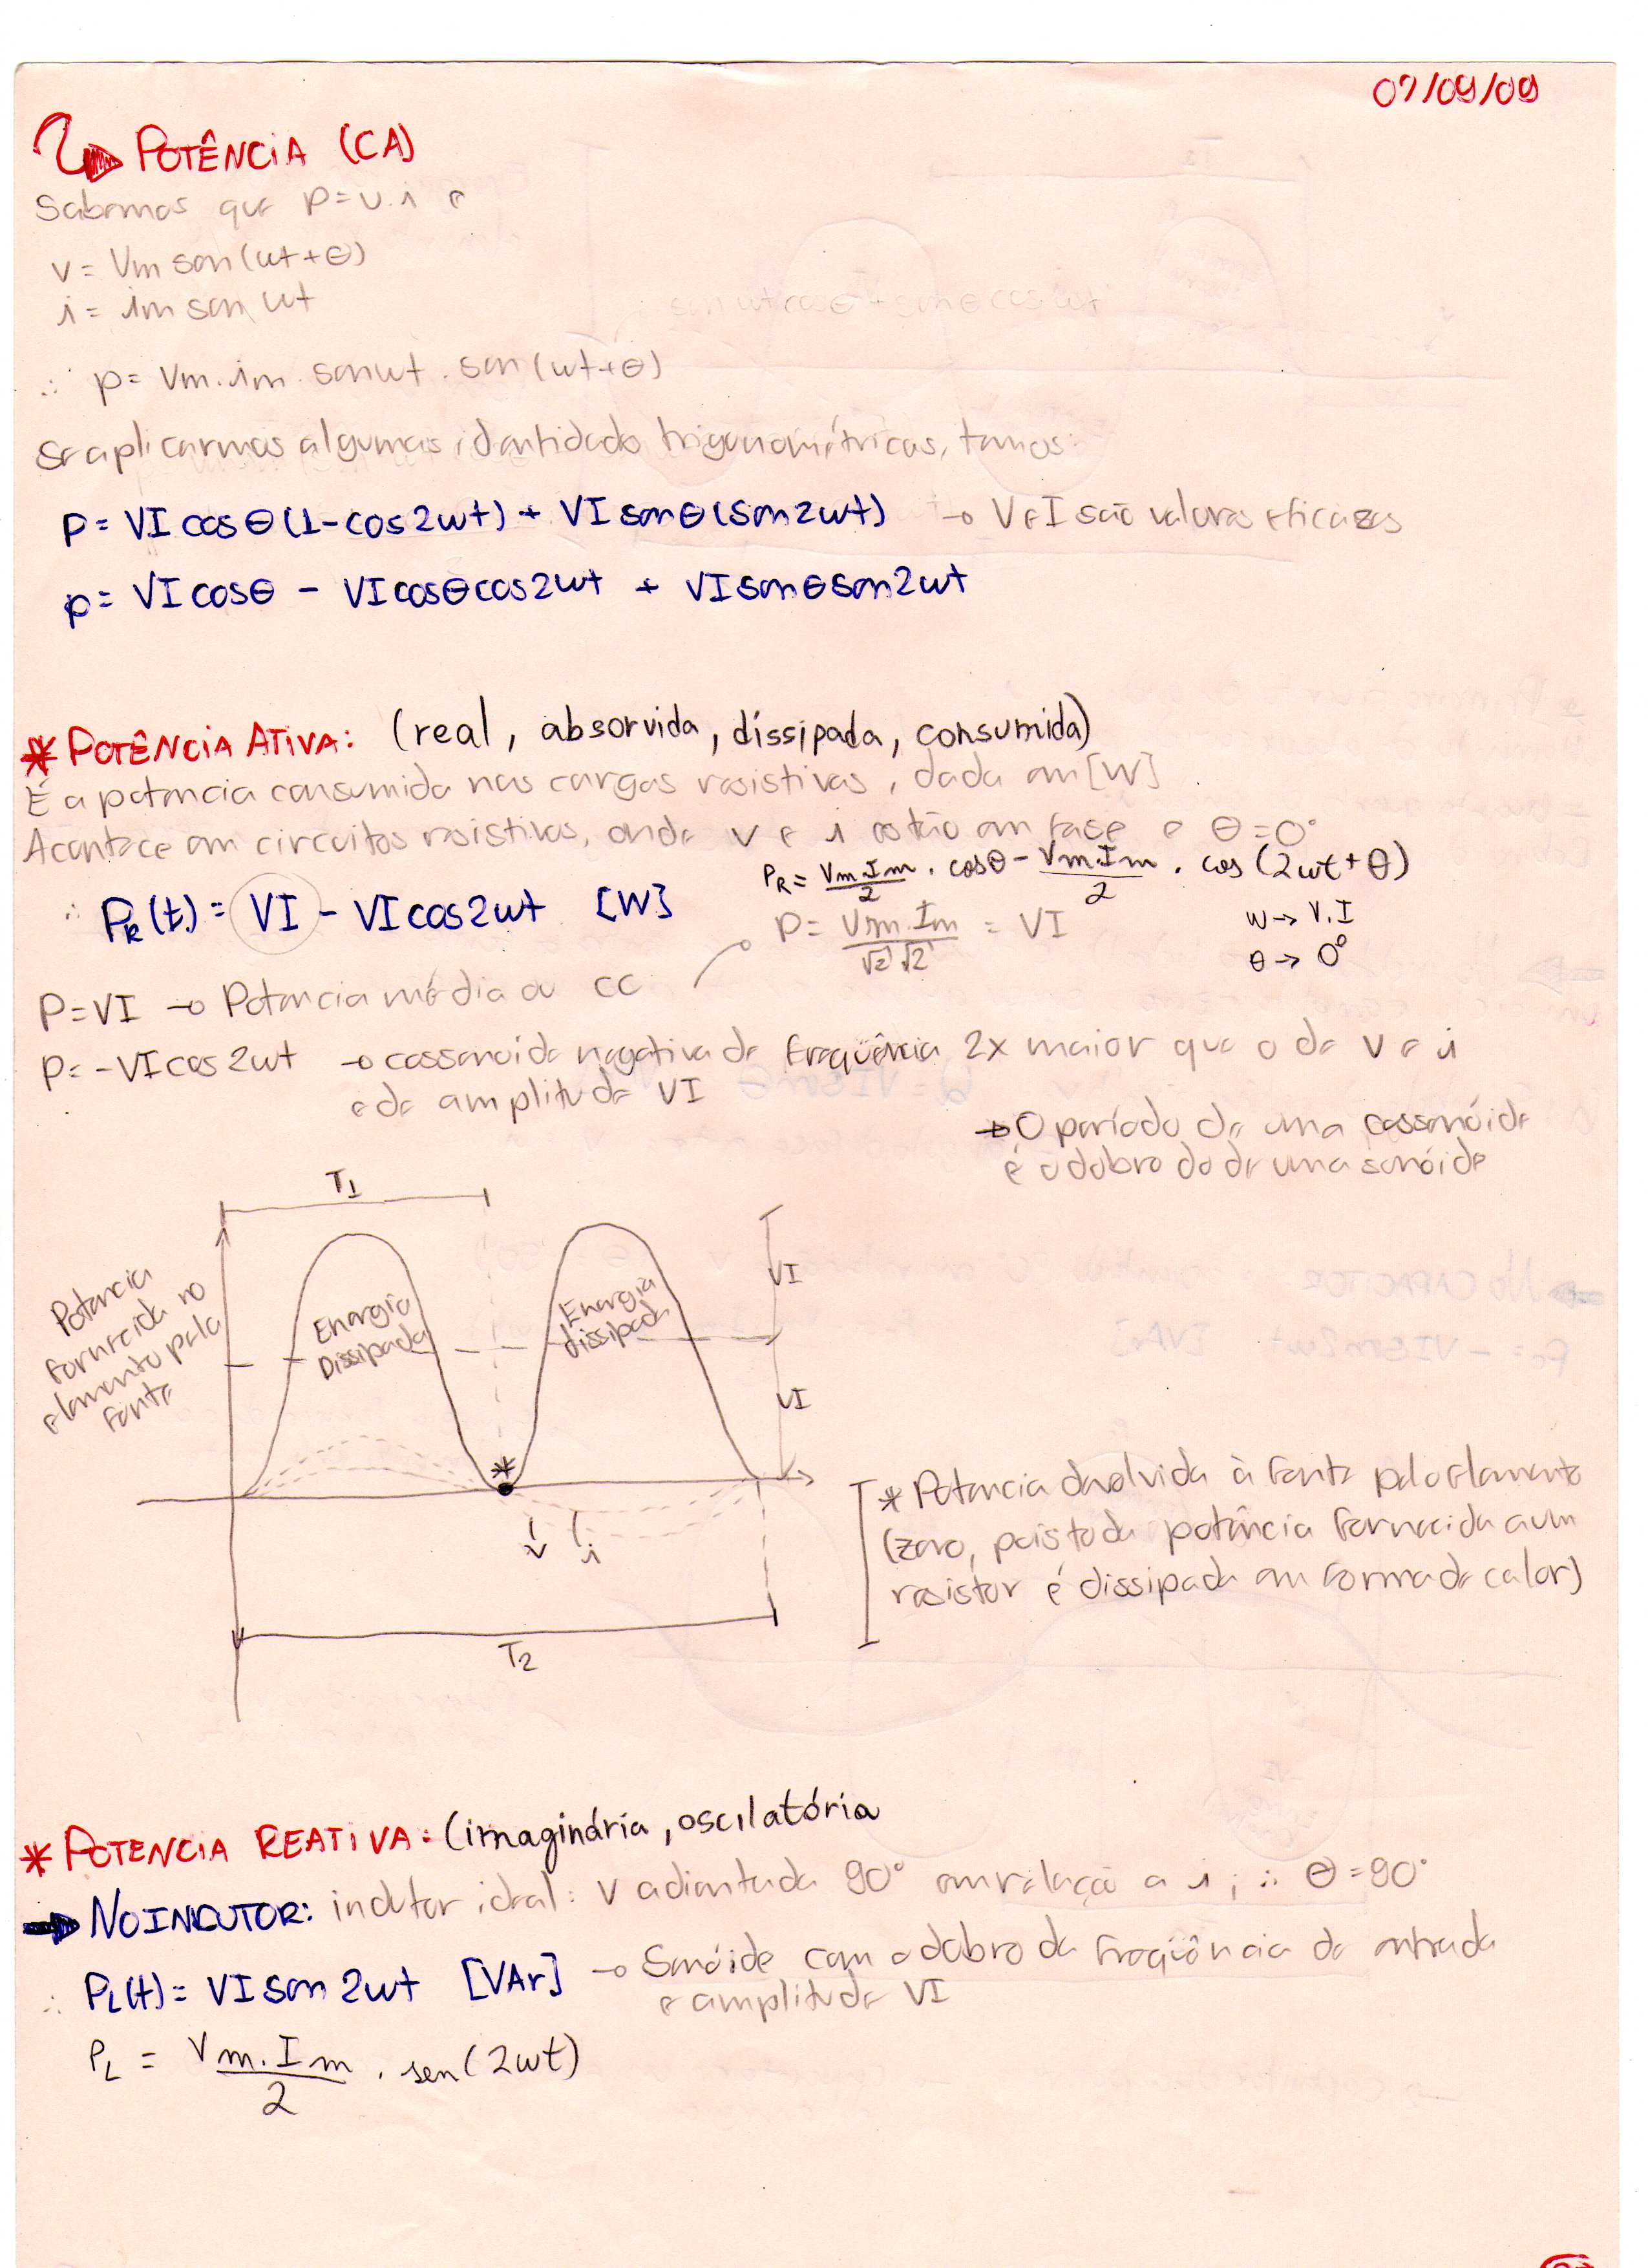 07/09/09
POTÊNCIA (CA)
Sabemos que p=v.i e
v= Vm sen(wt+θ)
i= im sen wt
∴ p= Vm.im.senwt.sen(wt+θ)
Se aplicarmos algumas identidade trigonométricas, temos:
P= VI cosθ(1-cos2wt) + VI senθ(sen2wt) → V e I são valores eficazes
p= VI cosθ - VI cosθcos2wt + VI senθsen2wt
* POTÊNCIA ATIVA: (real, absorvida, dissipada, consumida)
É a potencia consumida nas cargas resistivas, dada em [W]
Acontece em circuitos resistivos, onde v e i estão em fase e θ=0°
PR = Vm.Im/2 . cosθ - Vm.Im/2 . cos(2wt+θ)
∴ PR(t) = VI - VI cos2wt [W]
P= Vm.Im/√2√2 = VI
w→ V.I
θ→ 0°
P=VI → Potencia média ou CC
P=-VI cos 2wt → cossenoide negativa de frequência 2x maior que o de v e i
e de amplitude VI
→ O período de uma cossenóide
é o dobro do de uma senóide
T1
Potencia
fornecida no
elemento pela
fonte
Energia
Dissipada
Energia
dissipada
VI
VI
*
v i
T2
* Potencia devolvida à fonte pelo elemento
(zero, pois toda potência fornecida a um
resistor é dissipada em forma de calor)
* POTENCIA REATIVA: (imaginária, oscilatória
NO INDUTOR: indutor ideal: v adiantada 90° em relação a i, ∴ θ=90°
∴ PL(t)= VI sen 2wt [VAr] → Senóide com o dobro da freqüência de entrada
e amplitude VI
PL = Vm.Im/2 . sen(2wt)